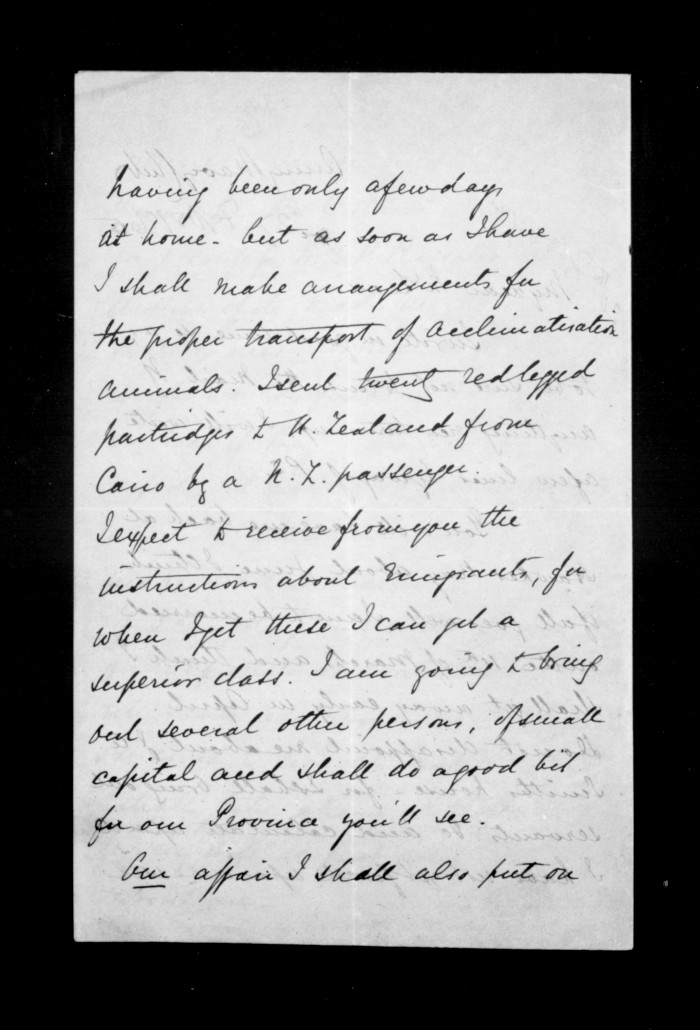 having been only a few days
at home - but as soon as I have
I shall make arrangements for
the proper transport of acclimatisation
animals. I sent twenty redlegged
partridges to N. Zealand from
Cairo by a N. Z. passenger.
I expect to receive from you the
instructions about Emigrants, for
when I get these I can get a
superior class. I am going to bring
out several other persons, of small
capital and shall do a good bit
for our Province you'll see.
Our affair I shall also put on